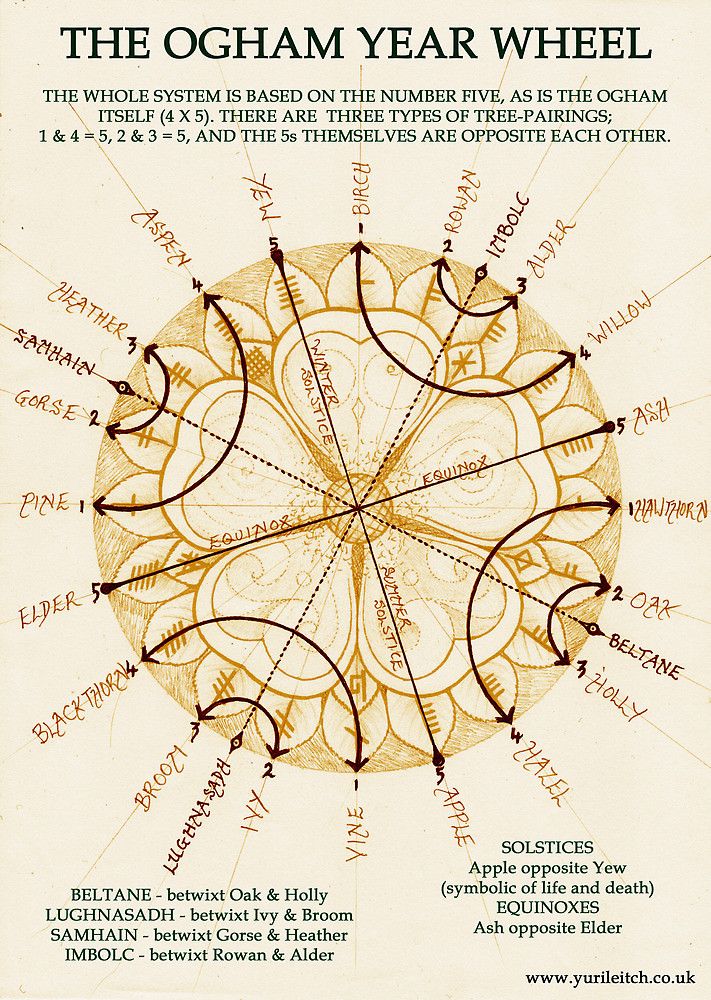 THE OGHAM YEAR WHEEL
THE WHOLE SYSTEM IS BASED ON THE NUMBER FIVE, AS IS THE OGHAM
ITSELF (4 X 5). THERE ARE THREE TYPES OF TREE-PAIRINGS;
1 & 4 = 5, 2 & 3 = 5, AND THE 5s THEMSELVES ARE OPPOSITE EACH OTHER.
1 BIRCH
2 ROWAN
IMBOLC
3 ALDER
4 WILLOW
5 ASH
1 HAWTHORN
2 OAK
BELTANE
3 HOLLY
4 HAZEL
5 APPLE
1 VINE
2 IVY
LUGHNASADH
3 BROOM
4 BLACKTHORN
5 ELDER
1 PINE
2 GORSE
SAMHAIN
3 HEATHER
4 ASPEN
5 YEW
WINTER
SOLSTICE
EQUINOX
EQUINOX
SUMMER
SOLSTICE
BELTANE - betwixt Oak & Holly
LUGHNASADH - betwixt Ivy & Broom
SAMHAIN - betwixt Gorse & Heather
IMBOLC - betwixt Rowan & Alder
SOLSTICES
Apple opposite Yew
(symbolic of life and death)
EQUINOXES
Ash opposite Elder
www.yurileitch.co.uk